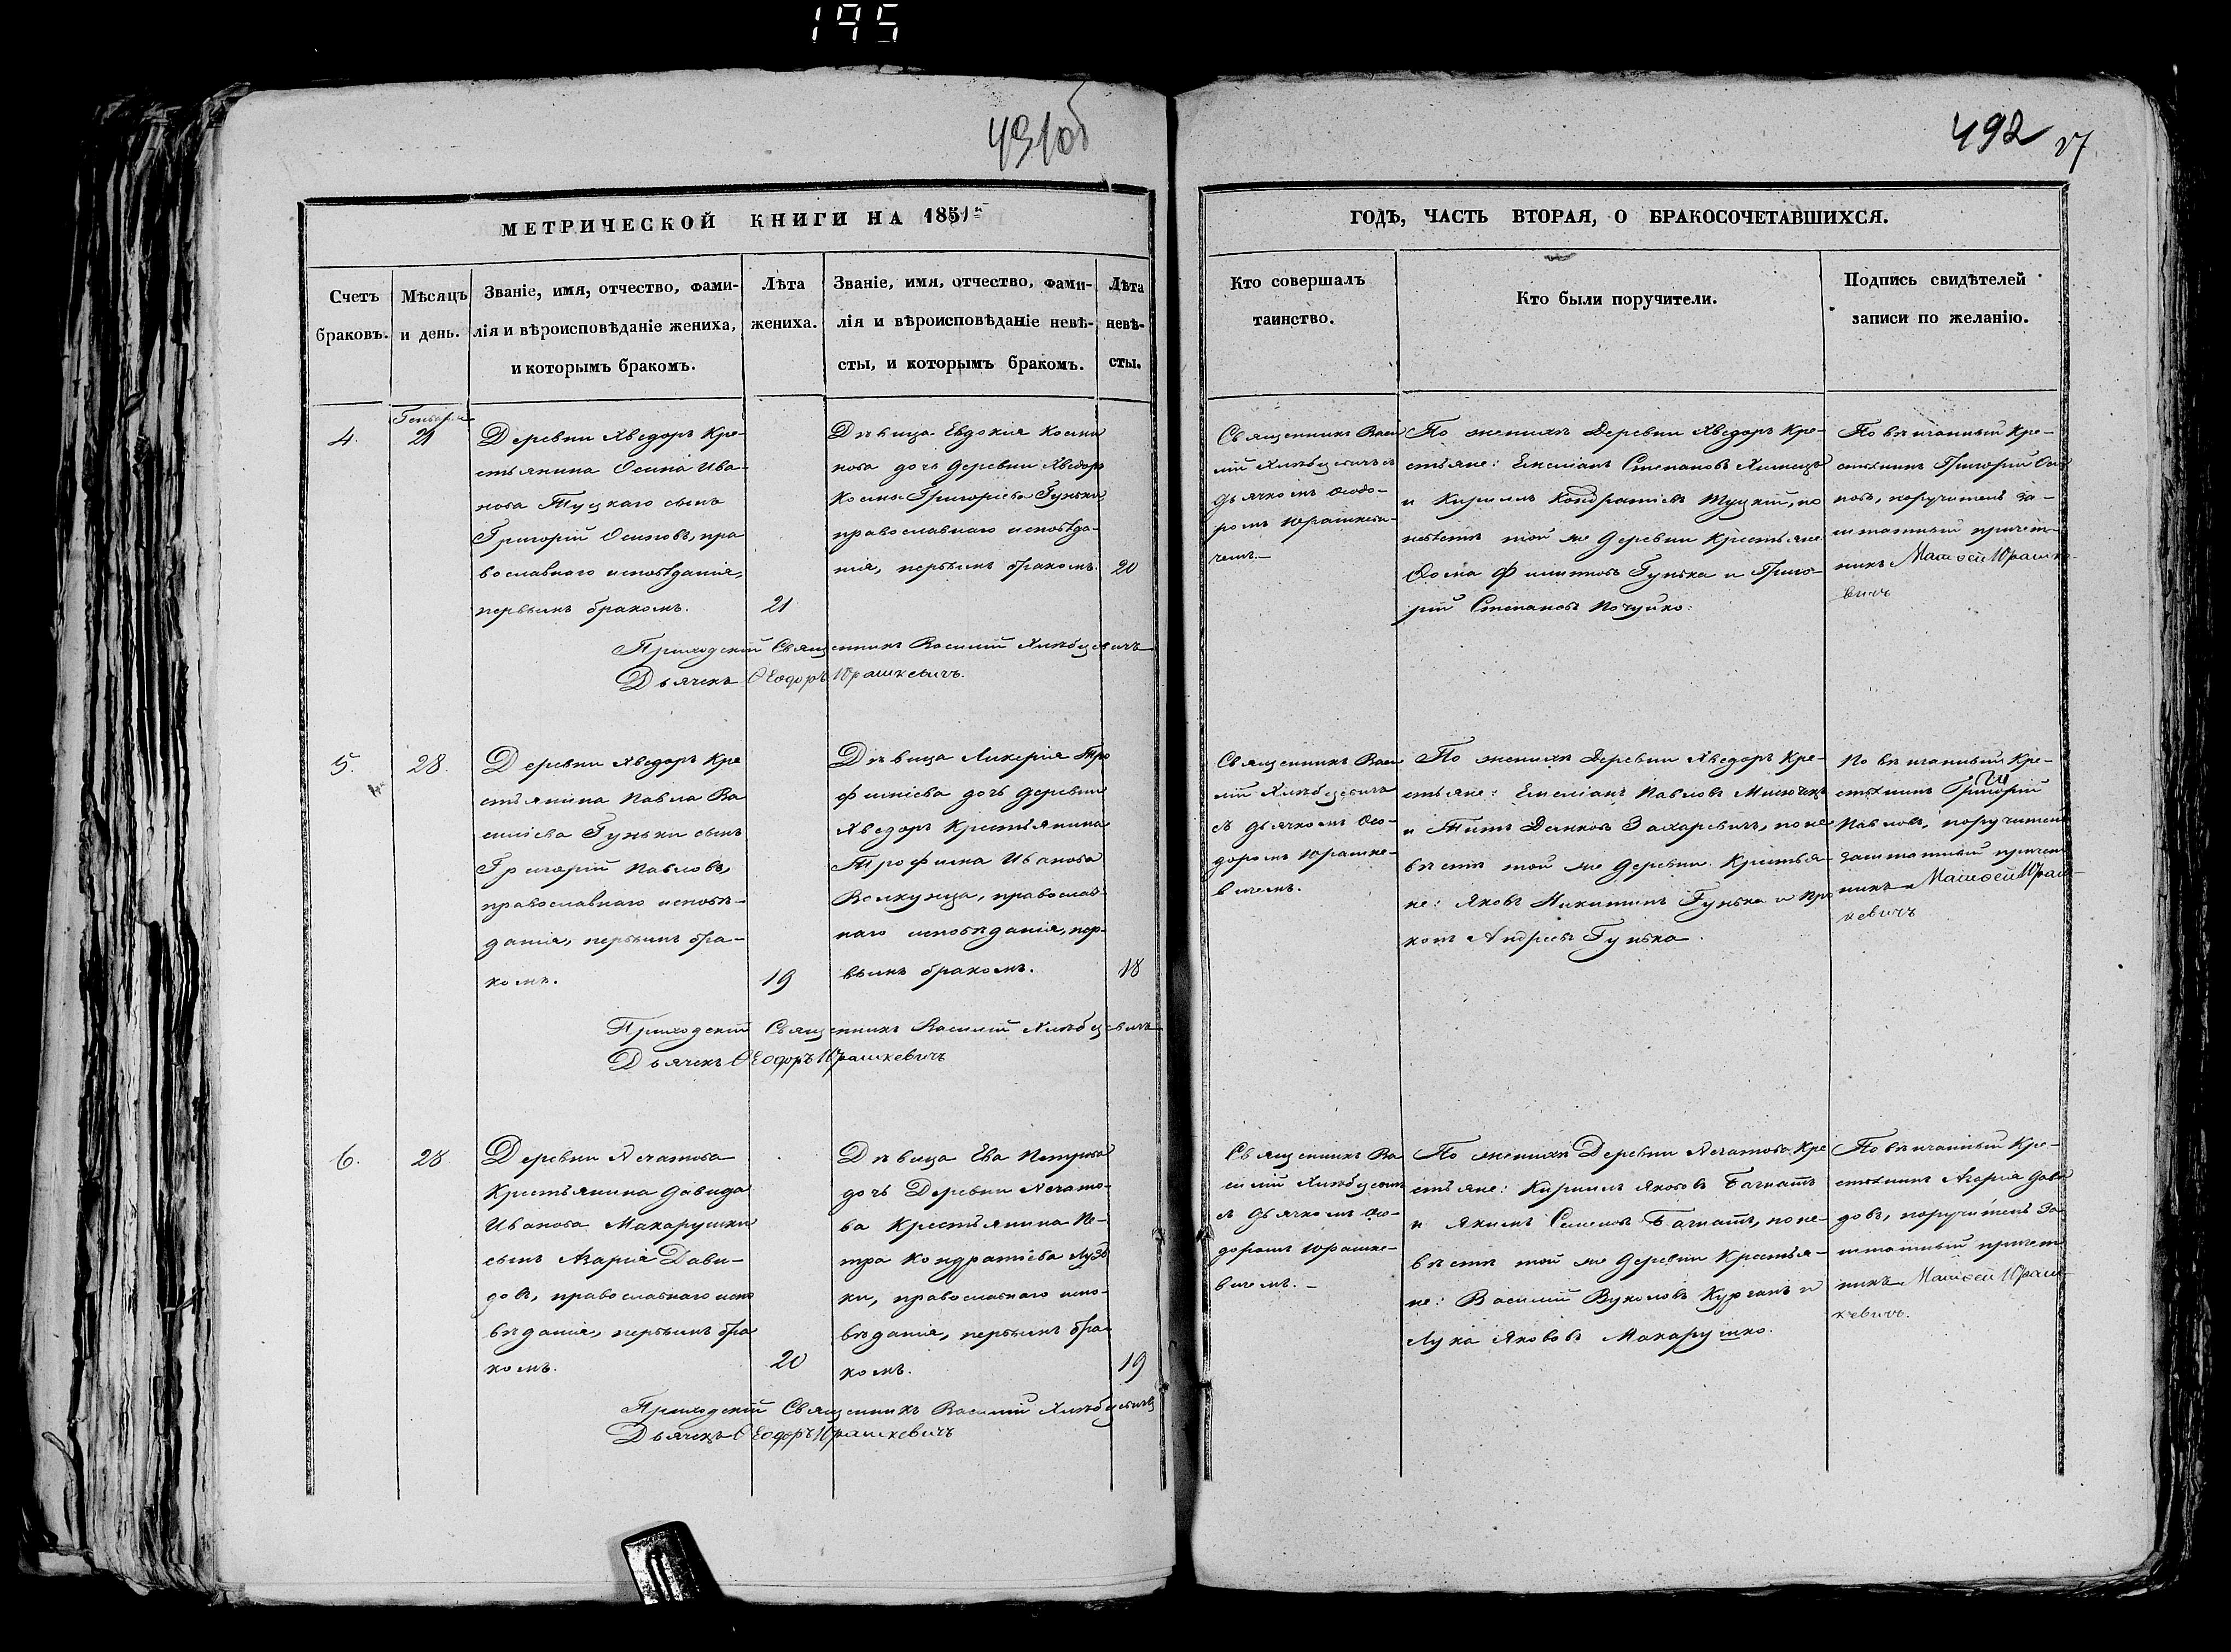 195
491об
492
27
МЕТРИЧЕСКОЙ КНИГИ НА 1851й
ГОДЪ, ЧАСТЬ ВТОРАЯ, О БРАКОСОЧЕТАВШИХСЯ.
Счетъ
браковъ.
Мѣсяцъ
и день.
Званіе, имя, отчество, фами-
лія и вѣроисповѣданіе жениха,
и которымъ бракомъ.
Лѣта
жениха.
Званіе, имя, отчество, фами-
лія и вѣроисповѣданіе невѣ-
сты, и которымъ бракомъ.
Лѣта
невѣ-
сты.
Кто совершалъ
таинство.
Кто были поручители.
Подпись свидѣтелей
записи по желанію.
4.
Генваря
21
Деревни Хведоръ Кре-
стьянина Осипа Ива-
нова Туцкаго сынъ
Григорій Осиповъ, пра
вославнаго исповѣданія,
первымъ бракомъ.
21
Дѣвица Евдокія Косми
нова дочь деревни Хведоръ
Космы Григоріева Гуньки
православнаго исповѣда-
нія, первымъ бракомъ.
20
Священникъ Васи
лій Хлѣбцевичъ съ
дьячкомъ Ѳеодо-
ромъ Юрашкеви-
чемъ.
По женихѣ Деревни Хведоръ Кре-
стьяне: Емеліанъ Степановъ
и Кириллъ Кондратіевъ Туцкій, по
невѣстѣ той же деревни Крестьяне
Ѳома Филиповъ Гунька и Григо-
рій Степановъ
Повѣнчанный Кре-
стьянинъ Григорій Оси
повъ, поручитель за-
штатный причет-
никъ Матѳей Юрашке-
вичъ
Приходскій Священникъ Василій Хлѣбцевичъ
Дьячекъ Ѳеодоръ Юрашкевичъ.
5.
28.
Деревни Хведоръ Кре
стьянина Павла Ва
силіева Гуньки сынъ
Григорій Павловъ,
православнаго исповѣ-
данія, первымъ бра-
комъ.
19
Дѣвица Ликерія Тро
фиміева дочь деревни
Хведоръ Крестьянина
Трофима Иванова
Волкунца, православ-
наго исповѣданія, пер-
вымъ бракомъ.
18
Священникъ Васи
лій Хлѣбцевичъ
съ дьячкомъ Ѳео-
доромъ Юрашке-
вичемъ.
По женихѣ Деревни Хведоръ Кре-
стьяне: Емеліанъ Павловъ
и Титъ Захаревичъ, по не
вѣстѣ той же деревни Крестья-
не: Яковъ Никитинъ Гунька и Про
копъ Андреевъ Гунька.
Повѣнчанный Кре-
стьянинъ Григорій
Павловъ, поручитель
заштатный причет
никъ Матѳей Юраш-
кевичъ
Приходскій Священникъ Василій Хлѣбцевичъ
Дьячекъ Ѳеодоръ Юрашкевичъ
6.
28
Деревни Нечатова
Крестьянина Давида
Иванова Макарушки
сынъ Азарія Дави-
довъ, православнаго испо
вѣданія, первымъ бра
комъ.
20
Дѣвица Ева Петрова
дочь Деревни Нечато-
ва Крестьянина Пе-
тра Кондратіева
ки, православнаго испо-
вѣданія, первымъ бра-
комъ.
19
Священникъ Ва
силій Хлѣбцевичъ
съ дьячкомъ Ѳео-
доромъ Юрашке-
вичемъ.
По женихѣ Деревни Нечатова Кре
стьяне: Кириллъ Яковъ Багнатъ
и Якимъ Семеновъ Багнатъ, по не-
вѣстѣ той же деревни Крестья-
не: Василій Вуколовъ Курганъ и
Лука Яковъ Макарушко.
Повѣнчанный Кре-
стьянинъ Азарія Дави
довъ, поручитель за-
штатный причет
никъ Матѳей Юраш-
кевичъ.
Приходскій Священникъ Василій Хлѣбцевичъ
Дьячекъ Ѳеодоръ Юрашкевичъ